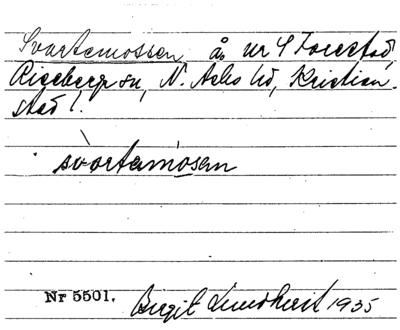 Svartemossen, å nr 4 Forestad
Riseberga sn, N. Åsbo hd, Kristian-
stad l.
svartamosen
Nr 5501. Birgit Lundkvist 1935